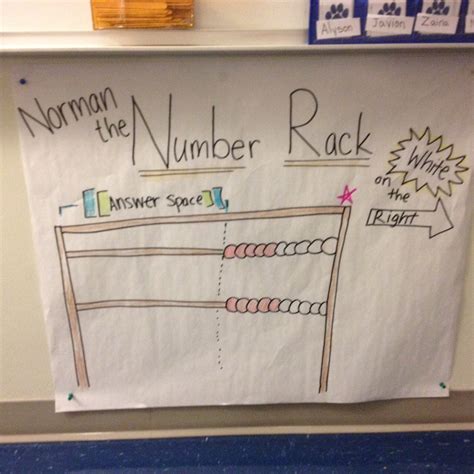 Alyson Javian Zaira
Norman the Number Rack
White
on
the
Right
Answer Space